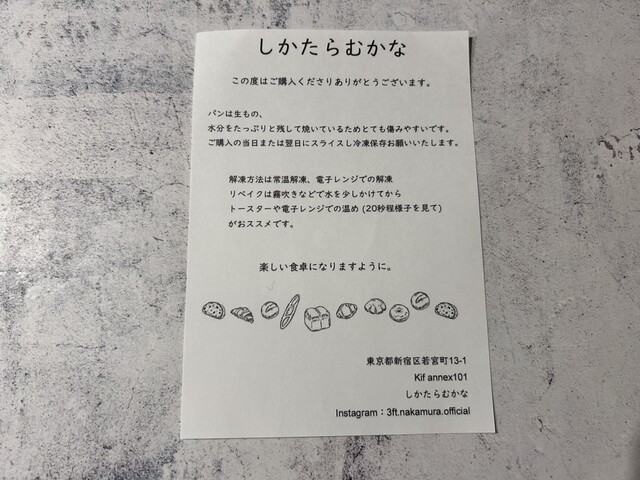 しかたらむかな
この度はご購入くださりありがとうございます。
パンは生もの、
水分をたっぷりと残して焼いているためとても傷みやすいです。
ご購入の当日または翌日にスライスし冷凍保存お願いいたします。
解凍方法は常温解凍、電子レンジでの解凍
リベイクは霧吹きなどで水を少しかけてから
トースターや電子レンジでの温め (20秒程様子を見て)
がおススメです。
楽しい食卓になりますように。
東京都新宿区若宮町13-1
Kif annex101
しかたらむかな
Instagram：3ft.nakamura.official